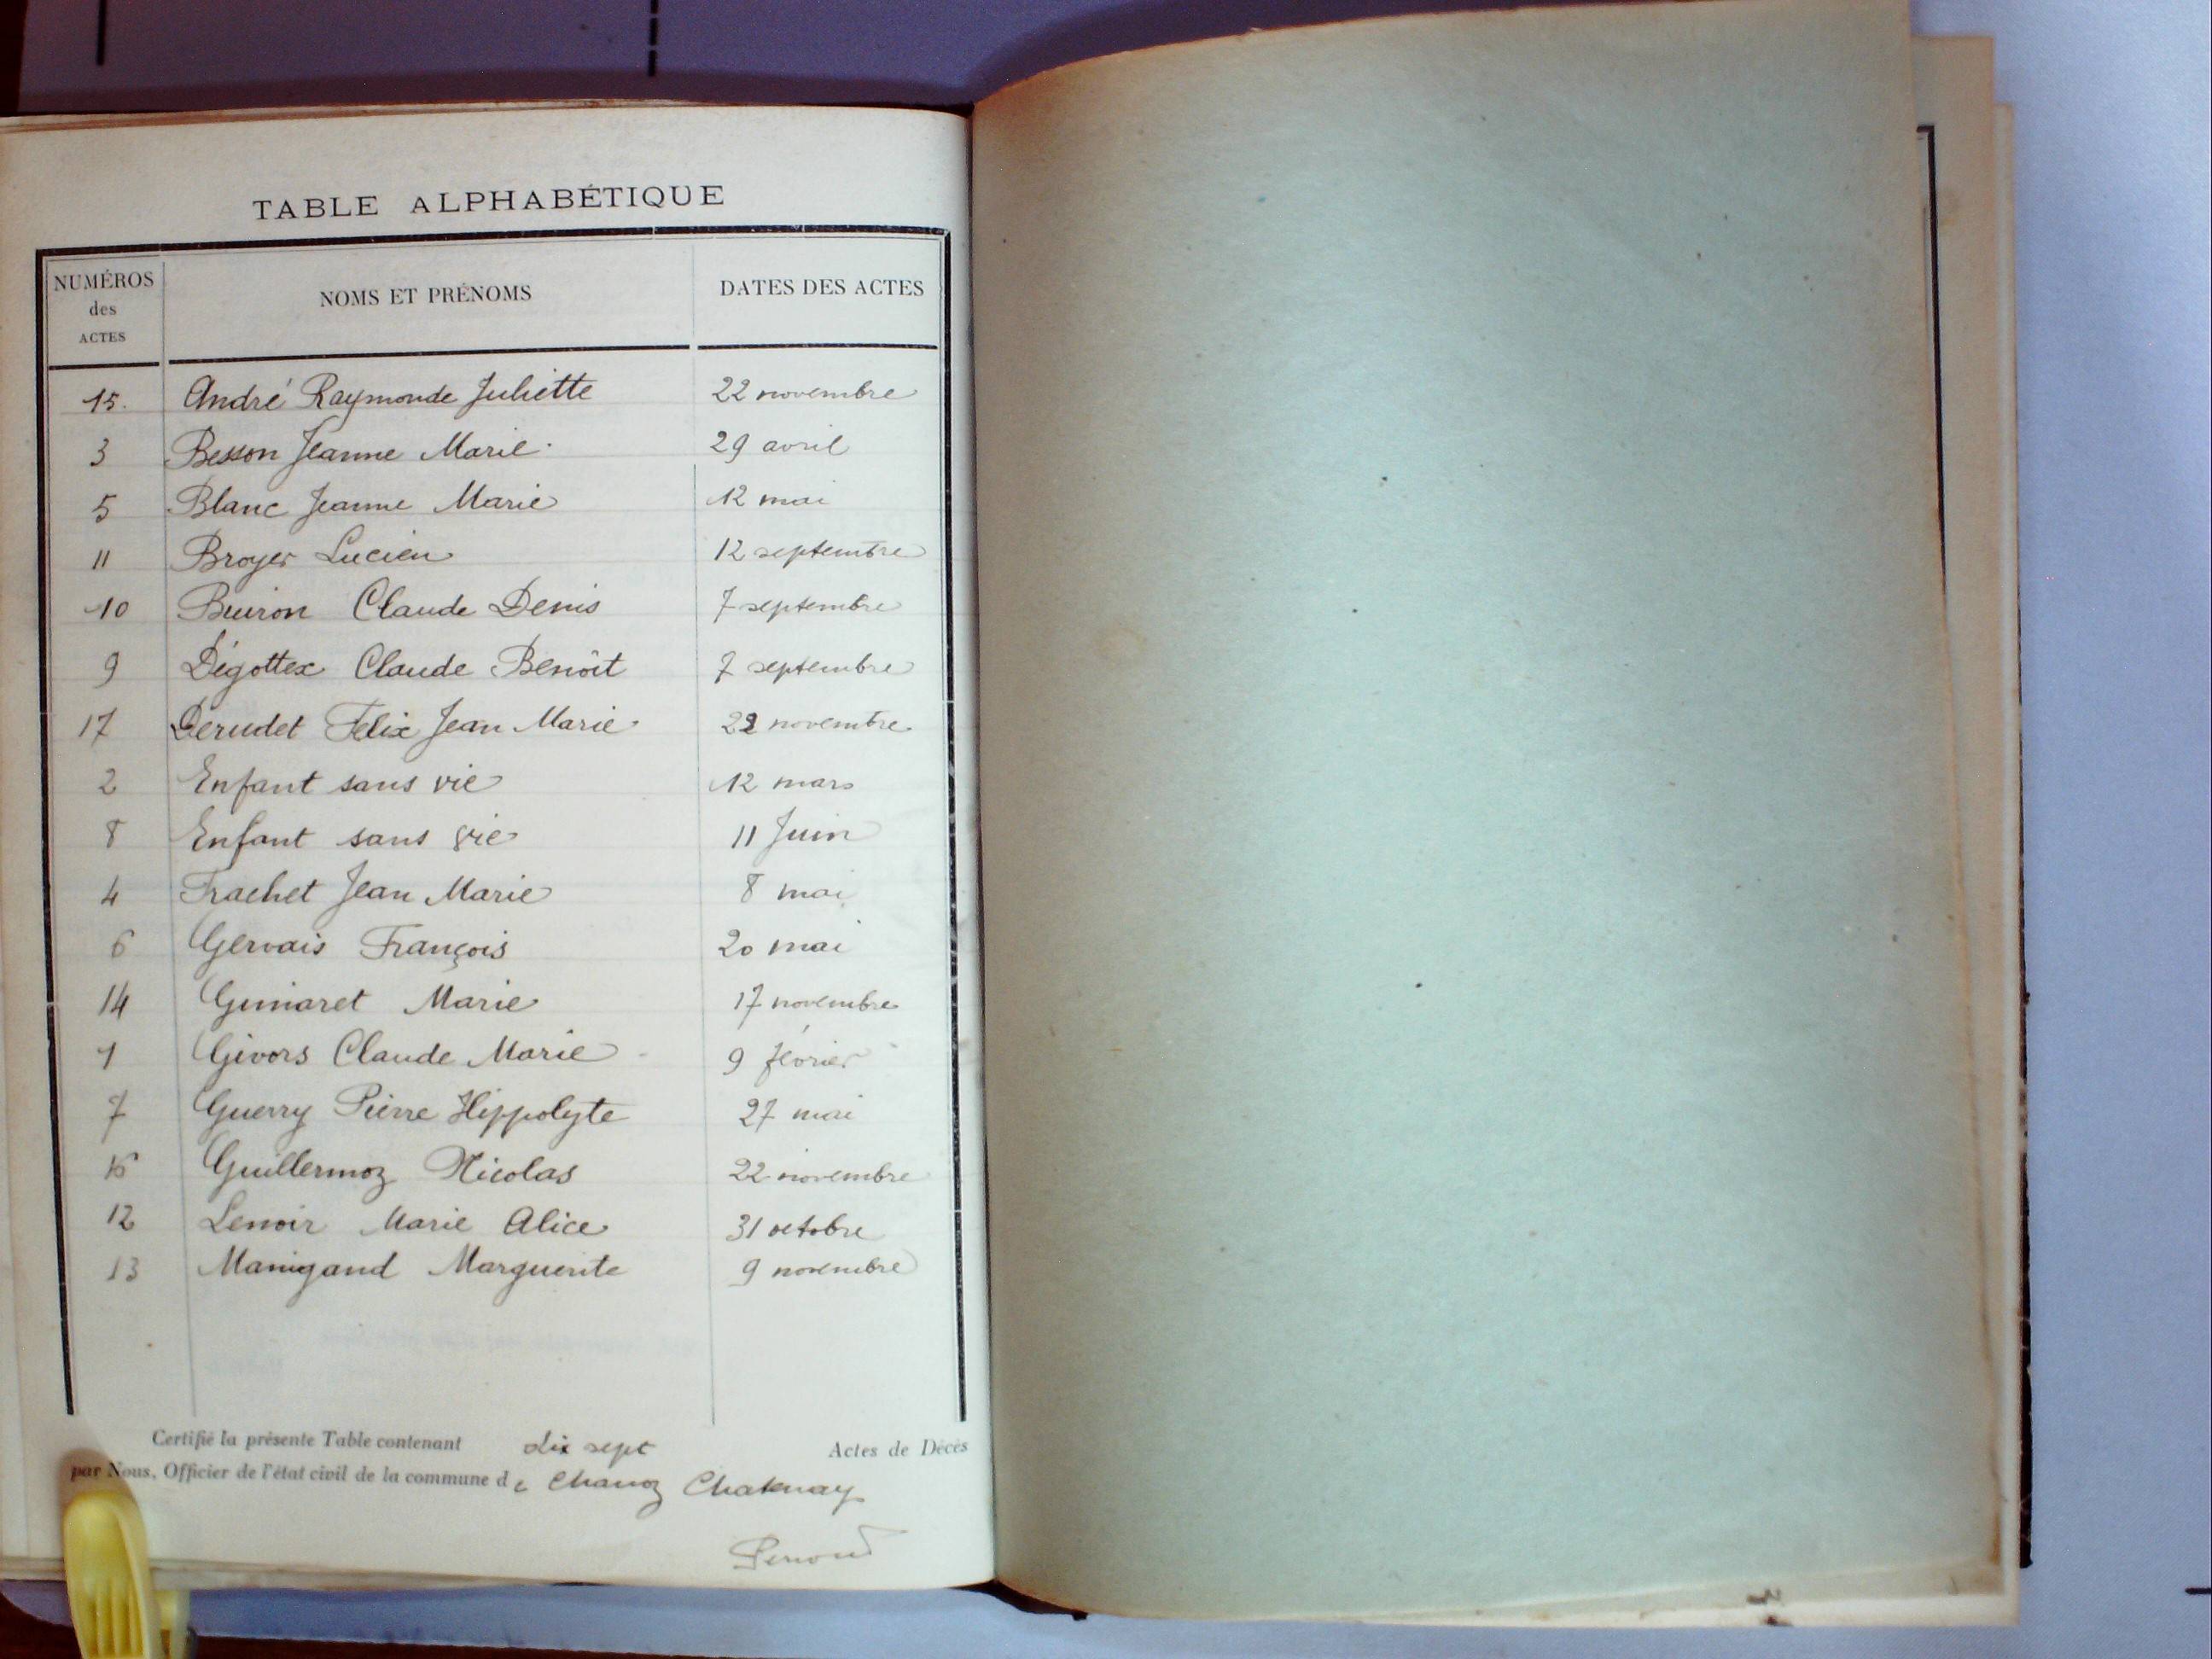 TABLE ALPHABÉTIQUE
NUMÉROS des ACTES NOMS ET PRÉNOMS DATES DES ACTES
15. André Raymonde Juliette 22 novembre
3 Besson Jeanne Marie 29 avril
5 Blanc Jeanne Marie 12 mai
11 Broyer Lucien 12 septembre
10 Buiron Claude Denis 7 septembre
9 Dégottex Claude Benoît 7 septembre
17 Derudet Felix Jean Marie 22 novembre
2 Enfant sans vie 12 mars
8 Enfant sans vie 11 Juin
4 Frachet Jean Marie 8 mai
6 Gervais François 20 mai
14 Gimaret Marie 17 novembre
1 Givors Claude Marie 9 février
7 Guerry Pierre Hippolyte 27 mai
Guillermoz Nicolas 22 novembre
12 Lenoir Marie Alice 31 octobre
13 Manigand Marguerite 9 novembre
Certifié la présente Table contenant dix sept Actes de Décès
par Nous, Officier de l'état civil de la commune de Chanoz Chatenay